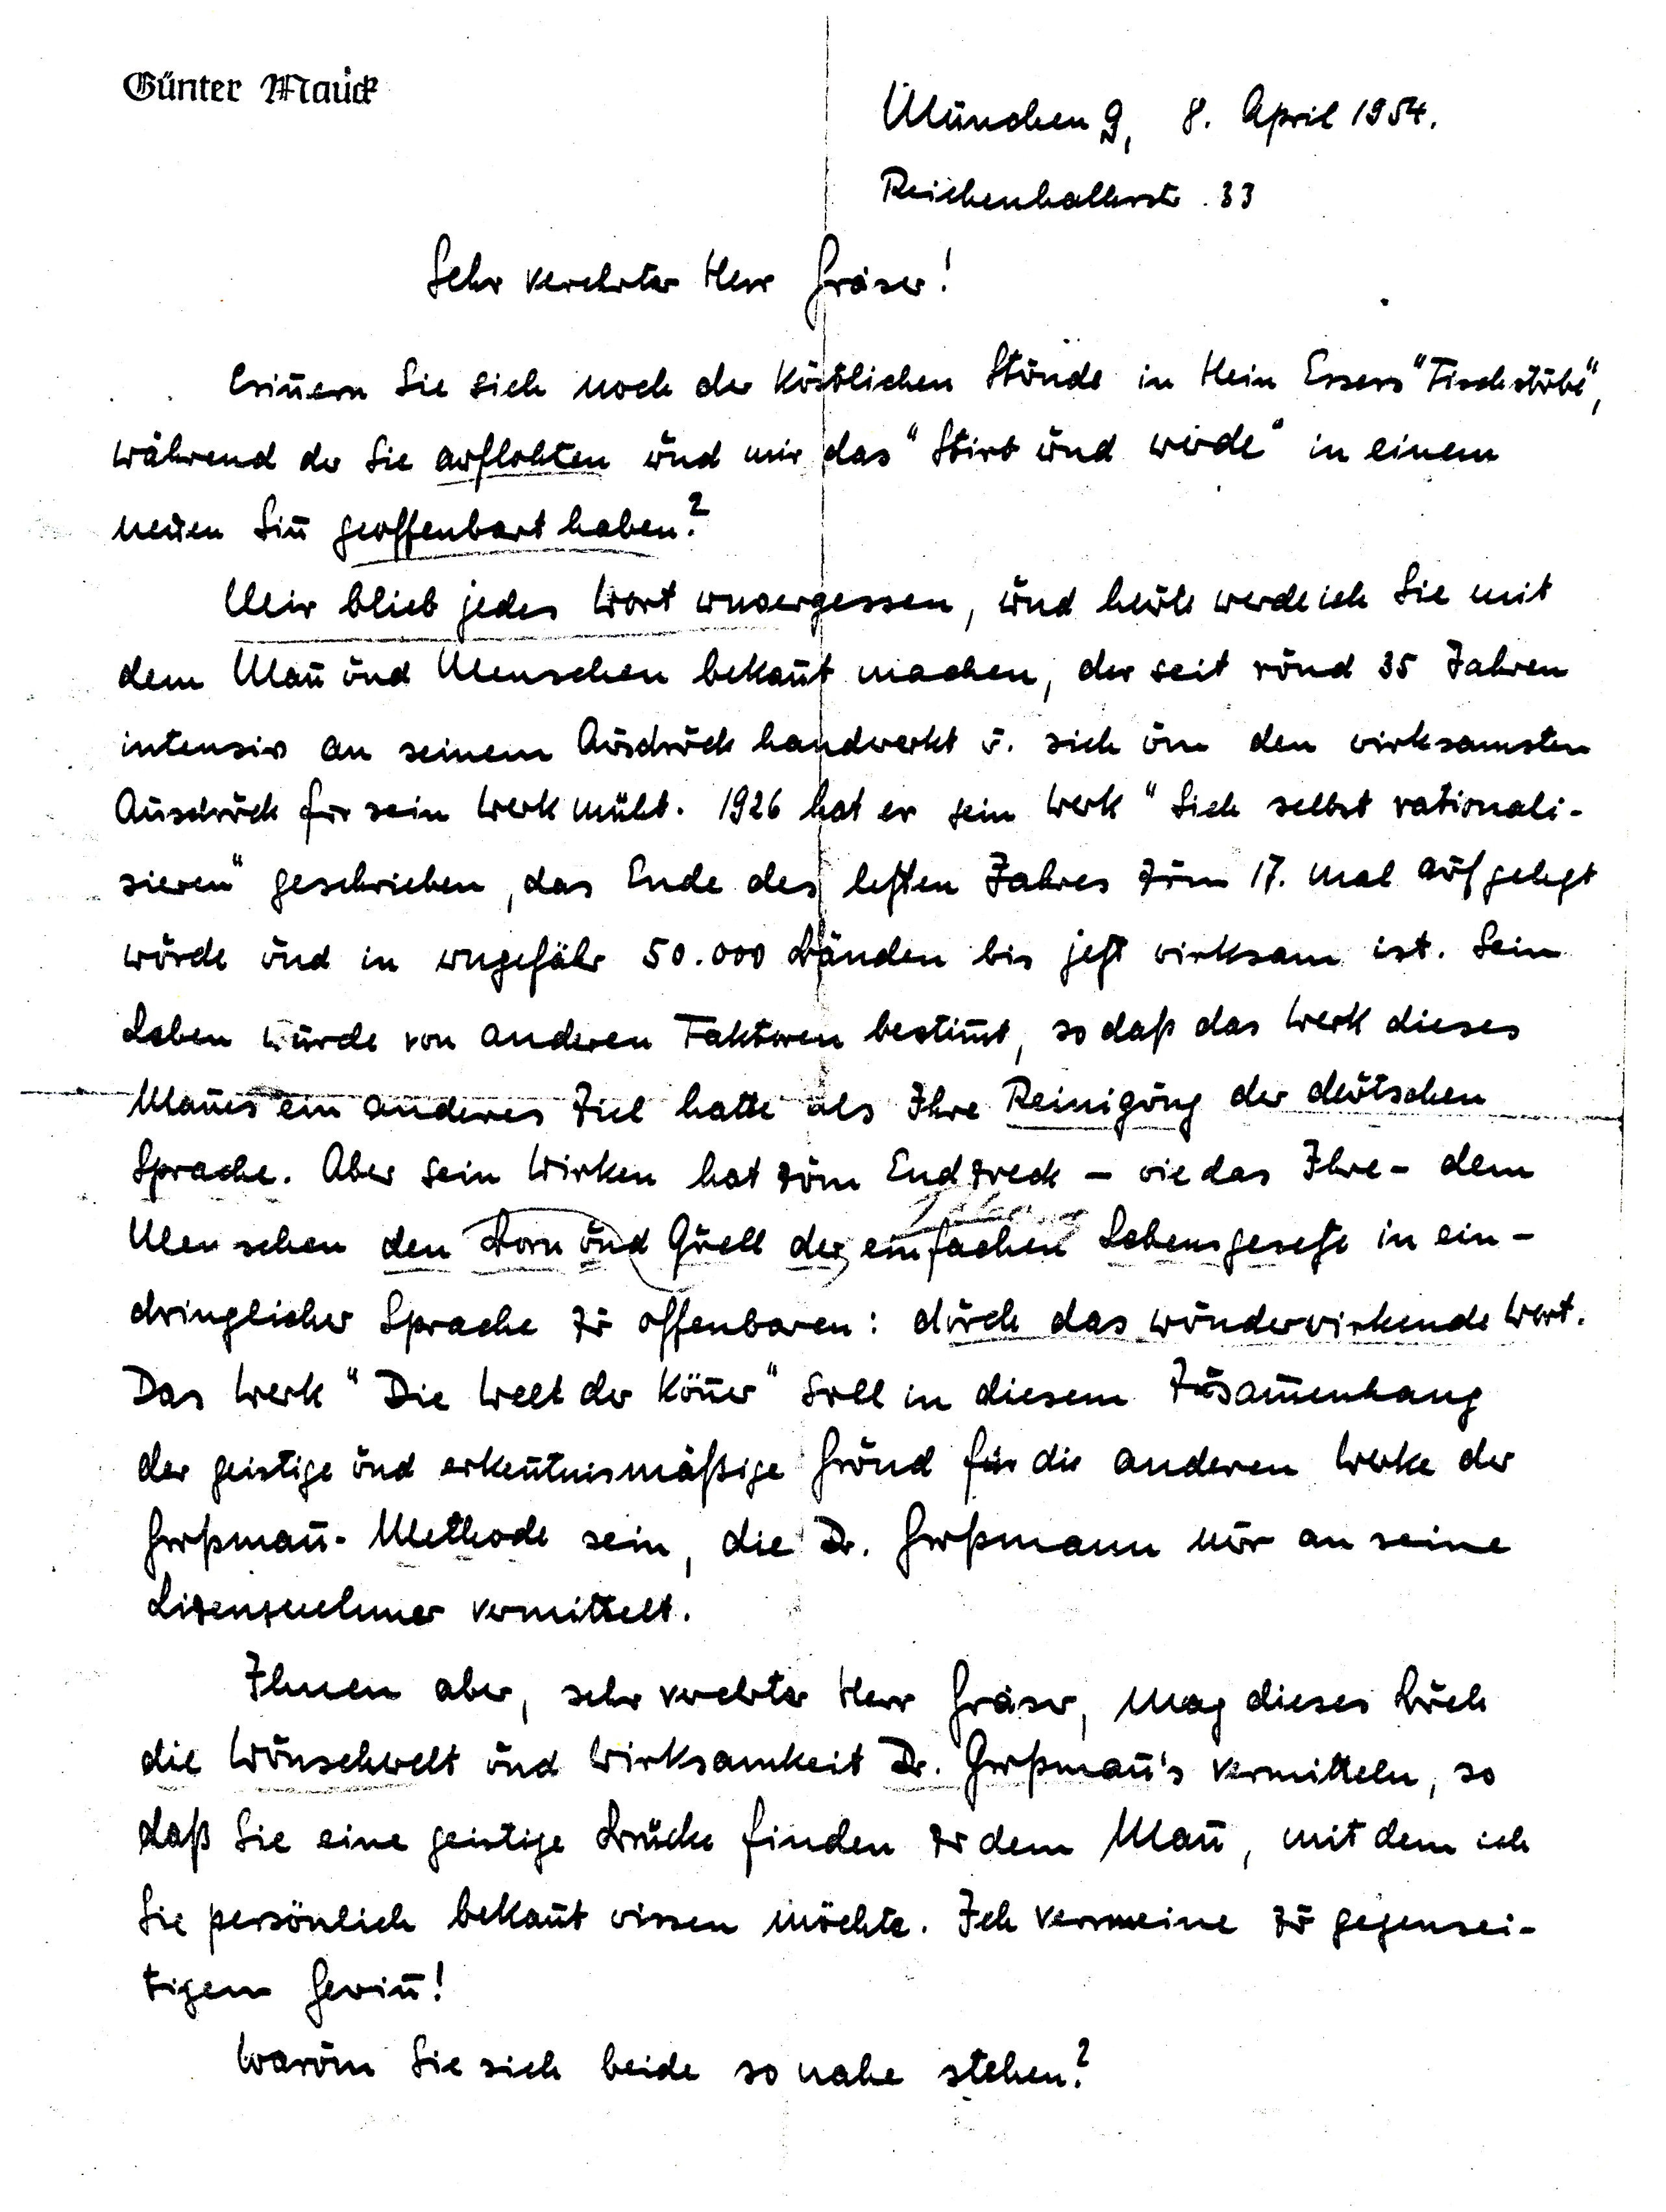 Günter Mauck
München 9, 8. April 1954.
Reichenhallerstr. 33
Sehr verehrter Herr Gräser!
Eriñern Sie sich noch der köstlichen Stunde in Hein Essers "Tischstube",
während der Sie auflohten und mir das "Stirb und werde" in einem
neuen Siñ geoffenbart haben?
Mir blieb jedes Wort unvergessen, und heute werde ich Sie mit
dem Mañ und Menschen bekañt machen, der seit rund 35 Jahren
intensiv an seinem Ausdruck handwerkt u. sich um den wirksamsten
Ausdruck für sein Werk müht. 1926 hat er sein Werk "Sich selbst rationali-
sieren" geschrieben, das Ende des letzten Jahres zum 17. mal aufgelegt
wurde und in ungefähr 50.000 Bänden bis jetzt wirksam ist. Sein
Leben wurde von anderen Faktoren bestim̄t, so daß das Werk dieses
Mañes ein anderes Ziel hatte als Ihre Reinigung der deutschen
Sprache. Aber sein Wirken hat zum Endzweck – wie das Ihre – dem
Menschen den Born und Quell der einfachen Lebensgesetze in ein-
dringlicher Sprache zu offenbaren: durch das wunderwirkende Wort.
Das Werk "Die Welt der Köñer" soll in diesem Zusam̄enhang
der geistige und erkeñtnismäßige Grund für die anderen Werke der
Großmañ-Methode sein, die Dr. Großmann nur an seine
Lizenznehmer vermittelt.
Ihnen aber, sehr verehrter Herr Gräser, mag dieses Buch
die Wunschwelt und Wirksamkeit Dr. Großmañ's vermitteln, so
daß Sie eine geistige Brücke finden zu dem Mañ, mit dem ich
Sie persönlich bekañt wissen möchte. Ich vermeine zu gegensei-
tigem Gewiñ!
Warum Sie sich beide so nahe stehen?